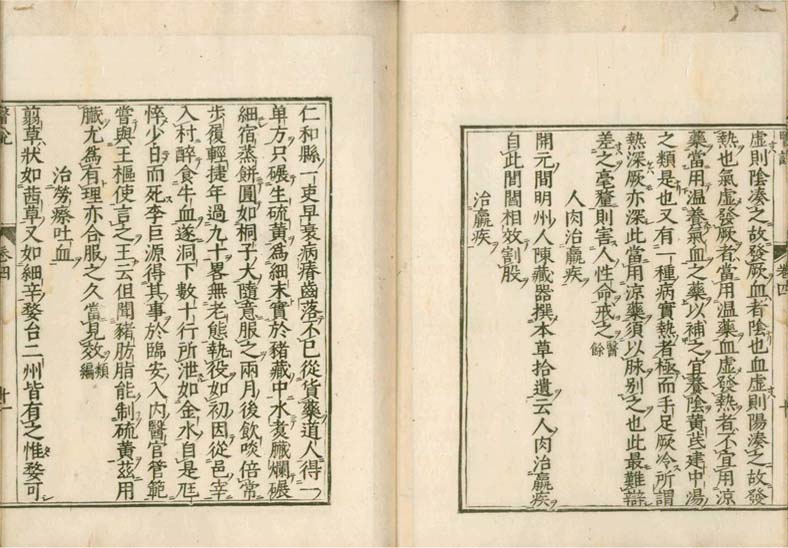 醫說
卷四
十
虛則陰湊之故發厥血者陰也血虛則陽湊之故發
熱也氣虛發厥者當用溫藥血虛發熱者不宜用涼
藥當用溫養氣血之藥以補之宜養陰黃芪建中湯
之類是也又有一種病實熱者極而手足厥冷所謂
熱深厥亦深此當用涼藥須以脉别之也此最難辯
差之毫釐則害人性命戒之醫餘
人肉治羸疾
開元間明州人陳藏器撰本草拾遺云人肉治羸疾
自此閭閻相效割股
治羸疾
仁和縣一吏早衰病瘠齒落不已從貨藥道人得一
单方只碾生硫黃為細末實於豬藏中水煑臟爛碾
細宿蒸餅圓如桐子大隨意服之两月後飲啖倍常
步履輕捷年過九十畧無老態執役如初因從邑宰
入村醉食牛血遂洞下數十行所泄如金水自是尫
悴少日而死李巨源得其事於臨安入內醫官管範
嘗與王樞使言之王云但聞豬肪脂能制硫黃茲用
臟尤為有理亦合服之久當見效類編
治勞瘵吐血
翦草狀如茜草又如細辛婺台二州皆有之惟婺可
醫說
卷四
十一